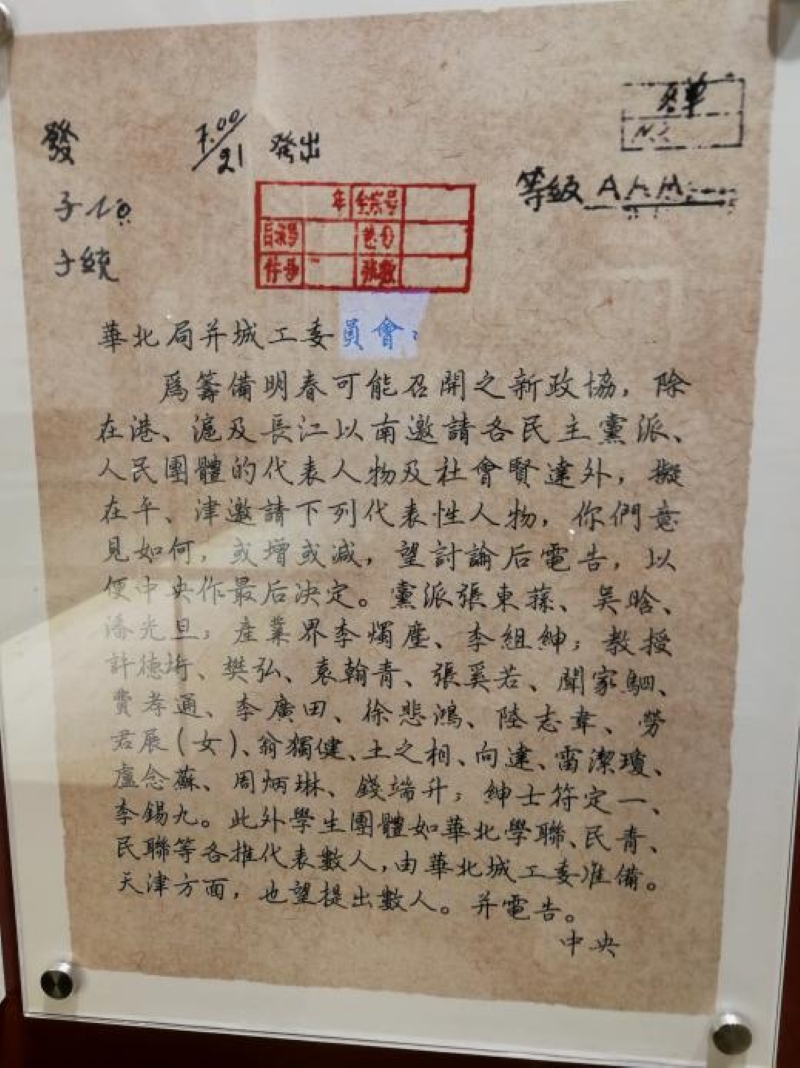 發
21 發出
等級 AAA
年 全宗号
目录号 卷号
件号 張數
華北局并城工委員會：
爲籌備明春可能召開之新政協，除
在港、滬及長江以南邀請各民主黨派、
人民團體的代表人物及社會賢達外，擬
在平、津邀請下列代表性人物，你們意
見如何，或增或减，望討論后電告，以
便中央作最后决定。黨派張東蓀、吴晗、
潘光旦；産業界李燭塵、李組紳；教授
許德珩、樊弘、袁翰青、張奚若、聞家駟、
費孝通、李廣田、徐悲鴻、陸志韋、勞
君展（女）、翁獨健、王之相、向達、雷潔瓊、
盧念蘇、周炳琳、錢端升；紳士符定一、
李錫九。此外學生團體如華北學聯、民青、
民聯等各推代表數人，由華北城工委准備。
天津方面，也望提出數人。并電告。
中央